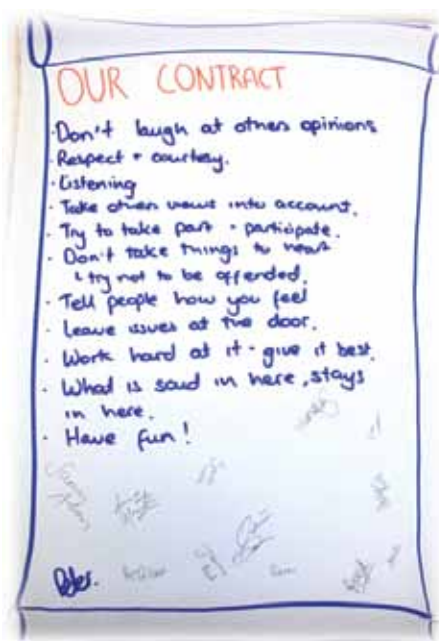 OUR CONTRACT
· Don't laugh at others opinions
· Respect + courtesy.
· Listening
· Take others views into account.
· Try to take part - participate.
· Don't take things to heart
↳ try not to be offended.
· Tell people how you feel
· Leave issues at the door.
· Work hard at it - give it best.
· What is said in here, stays
in here.
· Have fun!
Peter.